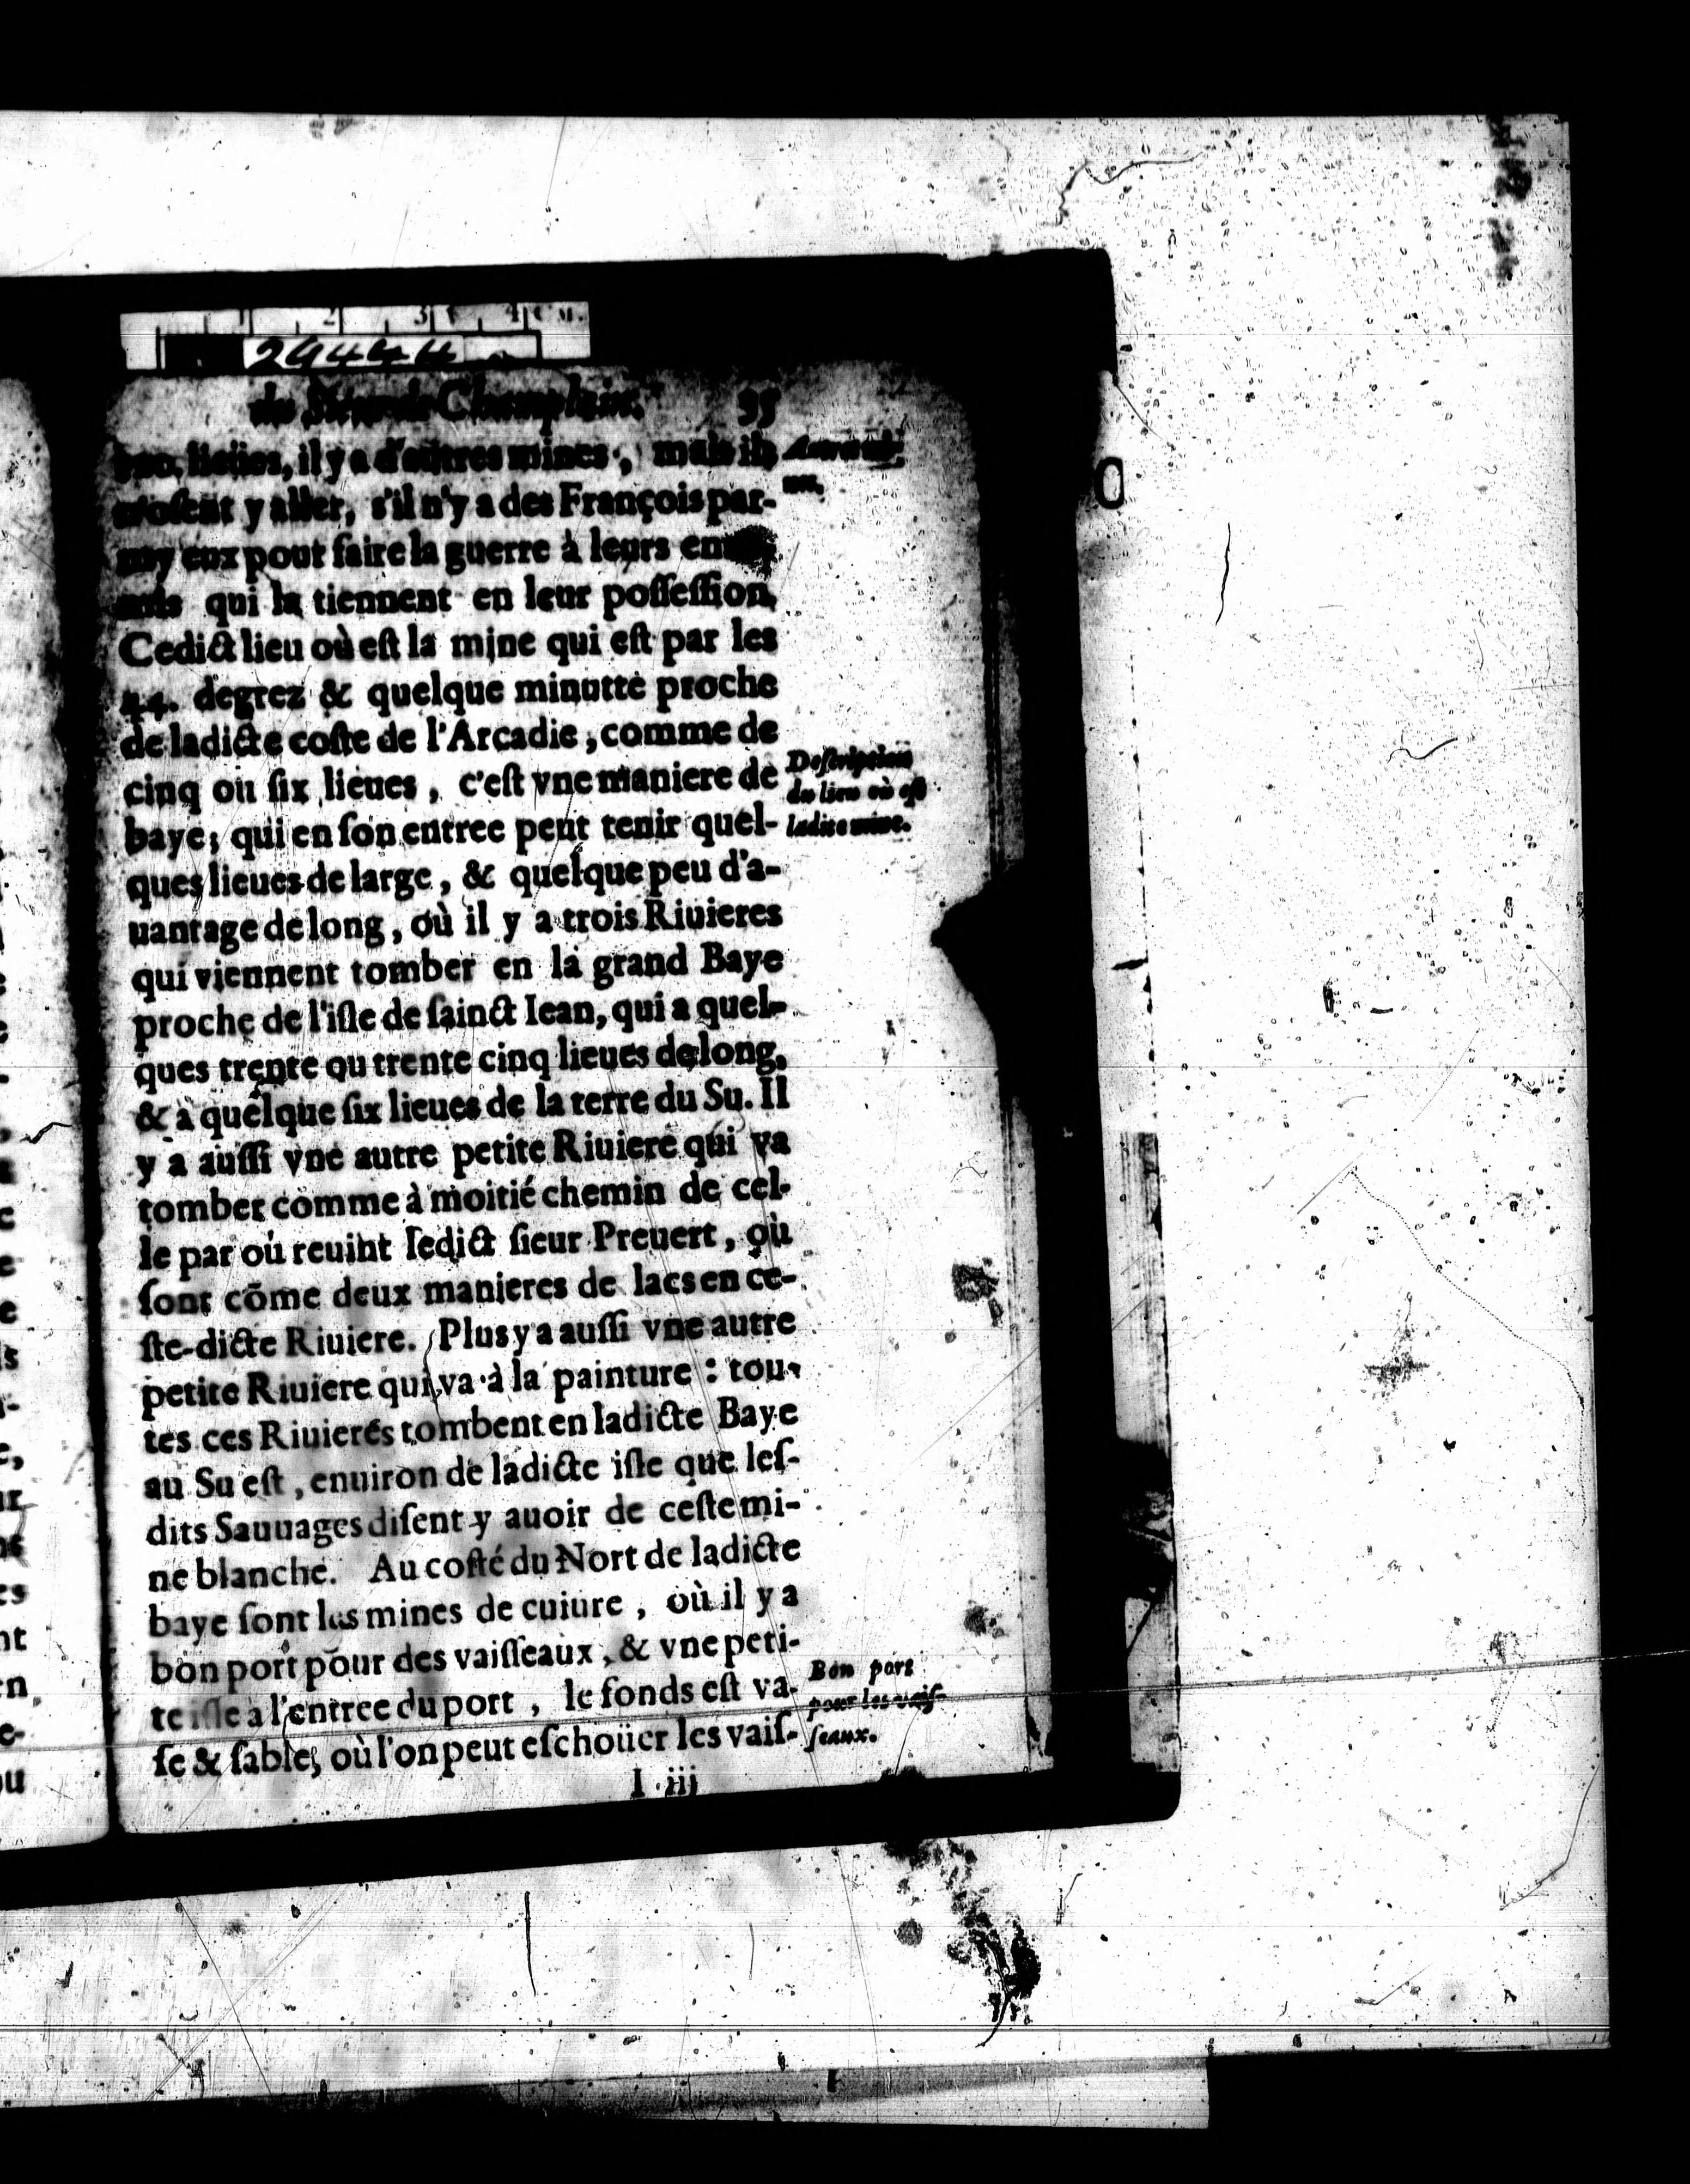 2 3 4 CM.
29444
du Sieur de Champlain. 35
lieües, il y a d'autres mines, mais ils
n'osent y aller, s'il n'y a des François par-
my eux pour faire la guerre à leurs
qui la tiennent en leur possession,
Cedict lieu où est la mine qui est par les
44. degrez & quelque minutte proche
de ladicte coste de l'Arcadie, comme de
cinq ou six lieues, c'est vne maniere de
baye; qui en son entree peut tenir quel-
ques lieues de large, & quelque peu d'a-
uantage de long, où il y a trois Riuieres
qui viennent tomber en la grand Baye
proche de l'isle de sainct Iean, qui a quel-
ques trente ou trente cinq lieues de long,
& à quelque six lieues de la terre du Su. Il
y a aussi vne autre petite Riuiere qui va
tomber comme à moitié chemin de cel-
le par où reuint ledict sieur Preuert, où
sont cōme deux manieres de lacs en ce-
ste-dicte Riuiere. Plus y a aussi vne autre
petite Riuiere qui va à la painture : tou-
tes ces Riuieres tombent en ladicte Baye
au Su est, enuiron de ladicte isle que les-
dits Sauuages disent y auoir de ceste mi-
ne blanche. Au costé du Nort de ladicte
baye sont les mines de cuiure, où il y a
bon port pour des vaisseaux, & vne peti-
te isle à l'entree du port, le fonds est va-
se & sable, où l'on peut eschoüer les vais-
I iij
Description
du lieu où est
ladite mine.
Bon port
pour les vais-
seaux.